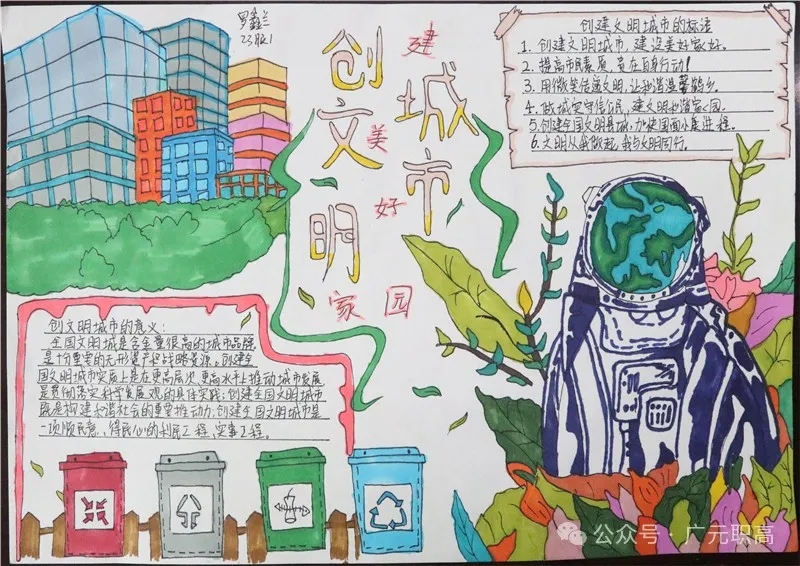 罗鑫兰
23级1
创文明
城市
建
美
好
家园
创建文明城市的标语
1. 创建文明城市，建设美好家好。
2. 提高市民素质，贵在自身行动！
3. 用微笑传递文明，让和谐温馨鹤乡。
4. 做城实守信公民，建文明和谐家园。
5. 创建全国文明县城，加快国面小康进程。
6. 文明从我做起，我与文明同行。
创文明城市的意义：
全国文明城是含金量很高的城市品牌，
是十份重要的无形资产和战略资源。创建全
国文明城市实质上是在更高层次更高水平上推动城市发展
是贯彻落实科学发展观的具体实践，创建全国文明城市
既是构建和谐社会的重要推动力，创建全国文明城市是
一项顺民意、得民心的利民工程、实事工程。
公众号·广元职高